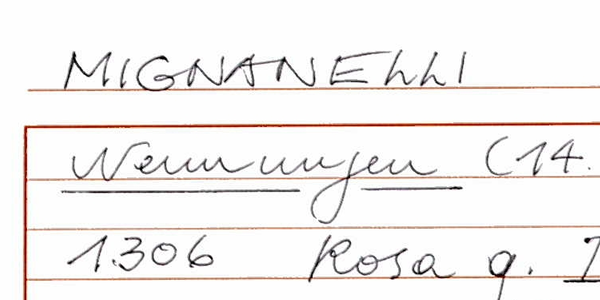 MIGNANELLI
Nennungen (14.
1.306 Rosa q.